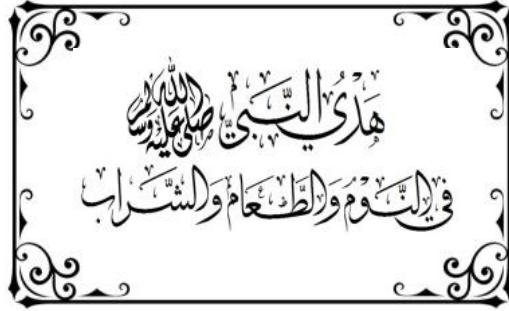 هَدْيُ النَّبِيِّ صلى الله عليه وسلم
فِي النَّوْمِ وَالطَّعَامِ وَالشَّرَابِ